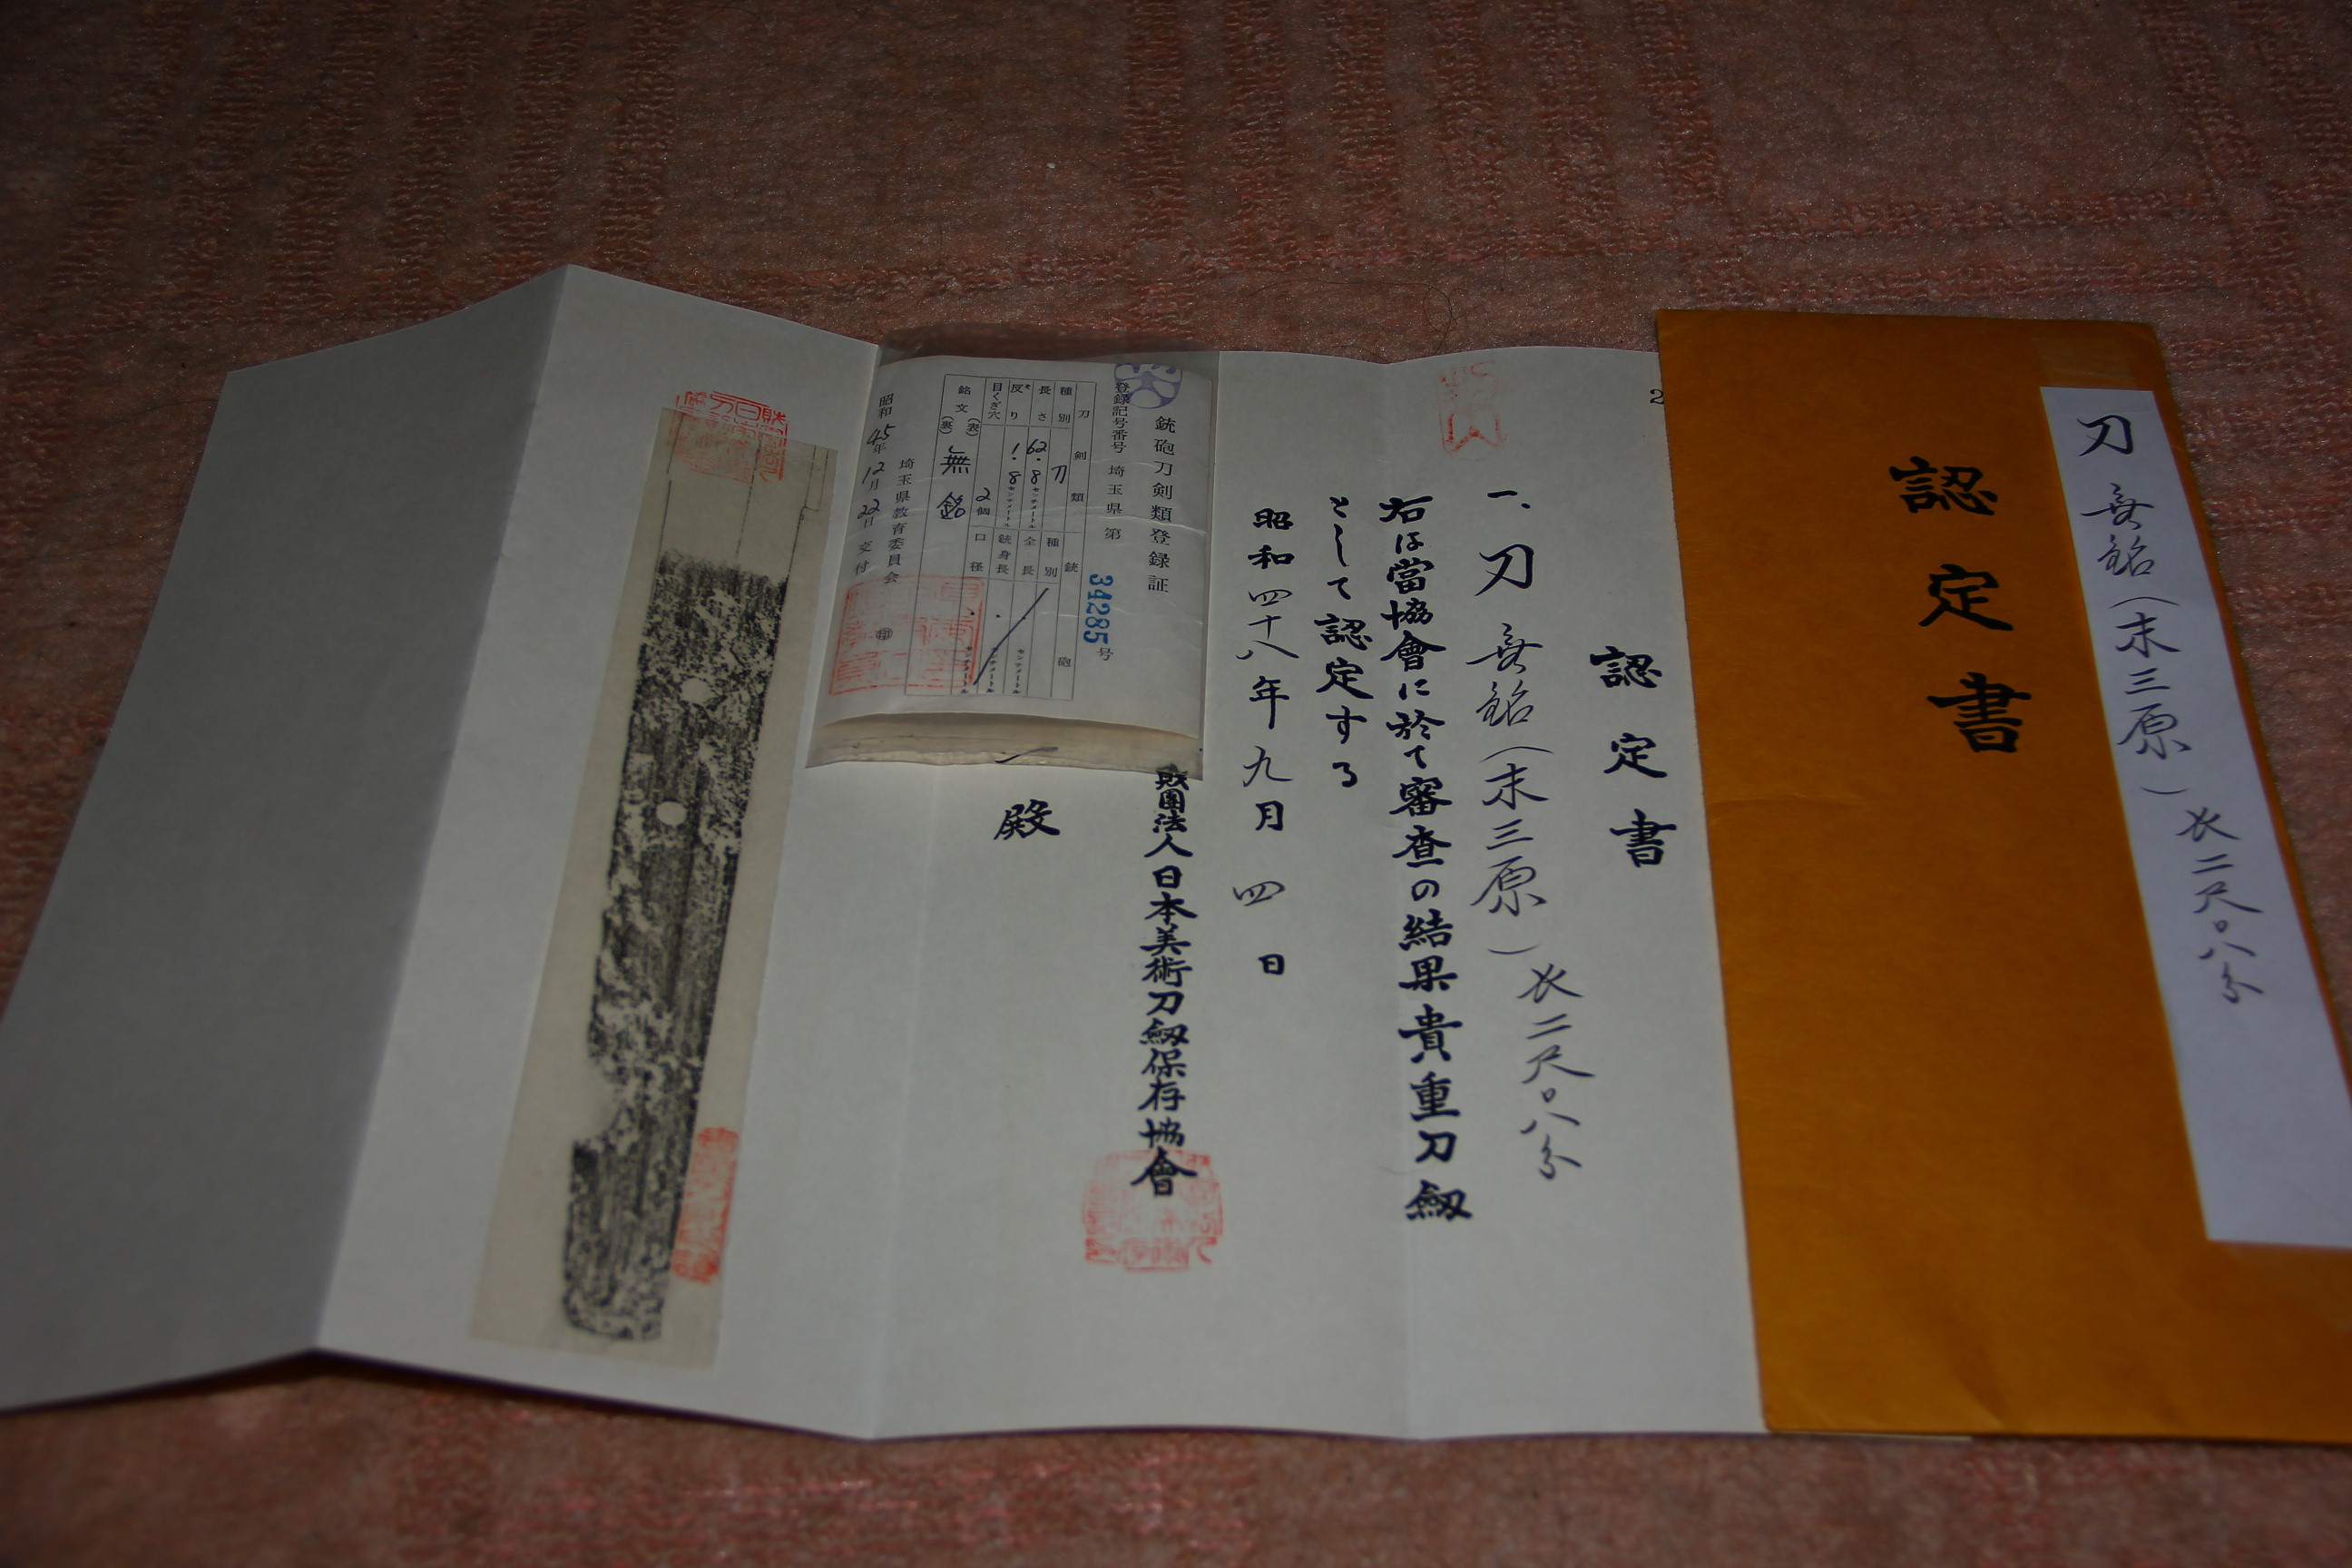 刀 無銘(末三原)長二尺〇八分
認定書
2
認定書
一、刀 無銘(末三原)長二尺〇八分
右は當協會に於て審査の結果貴重刀劔
として認定する
昭和四十八年九月四日
財團法人日本美術刀劔保存協會
殿
銃砲刀剣類登録証
登録記号番号 埼玉県 第34285号
刀剣類 銃砲
種別 刀 種別
長さ 62.8センチメートル 全長 センチメートル
反り 1.8センチメートル 銃身長 センチメートル
目くぎ穴 2個 口径 センチメートル
銘文 (表) 無銘
(裏)
埼玉県教育委員会 印
昭和45年12月22日交付